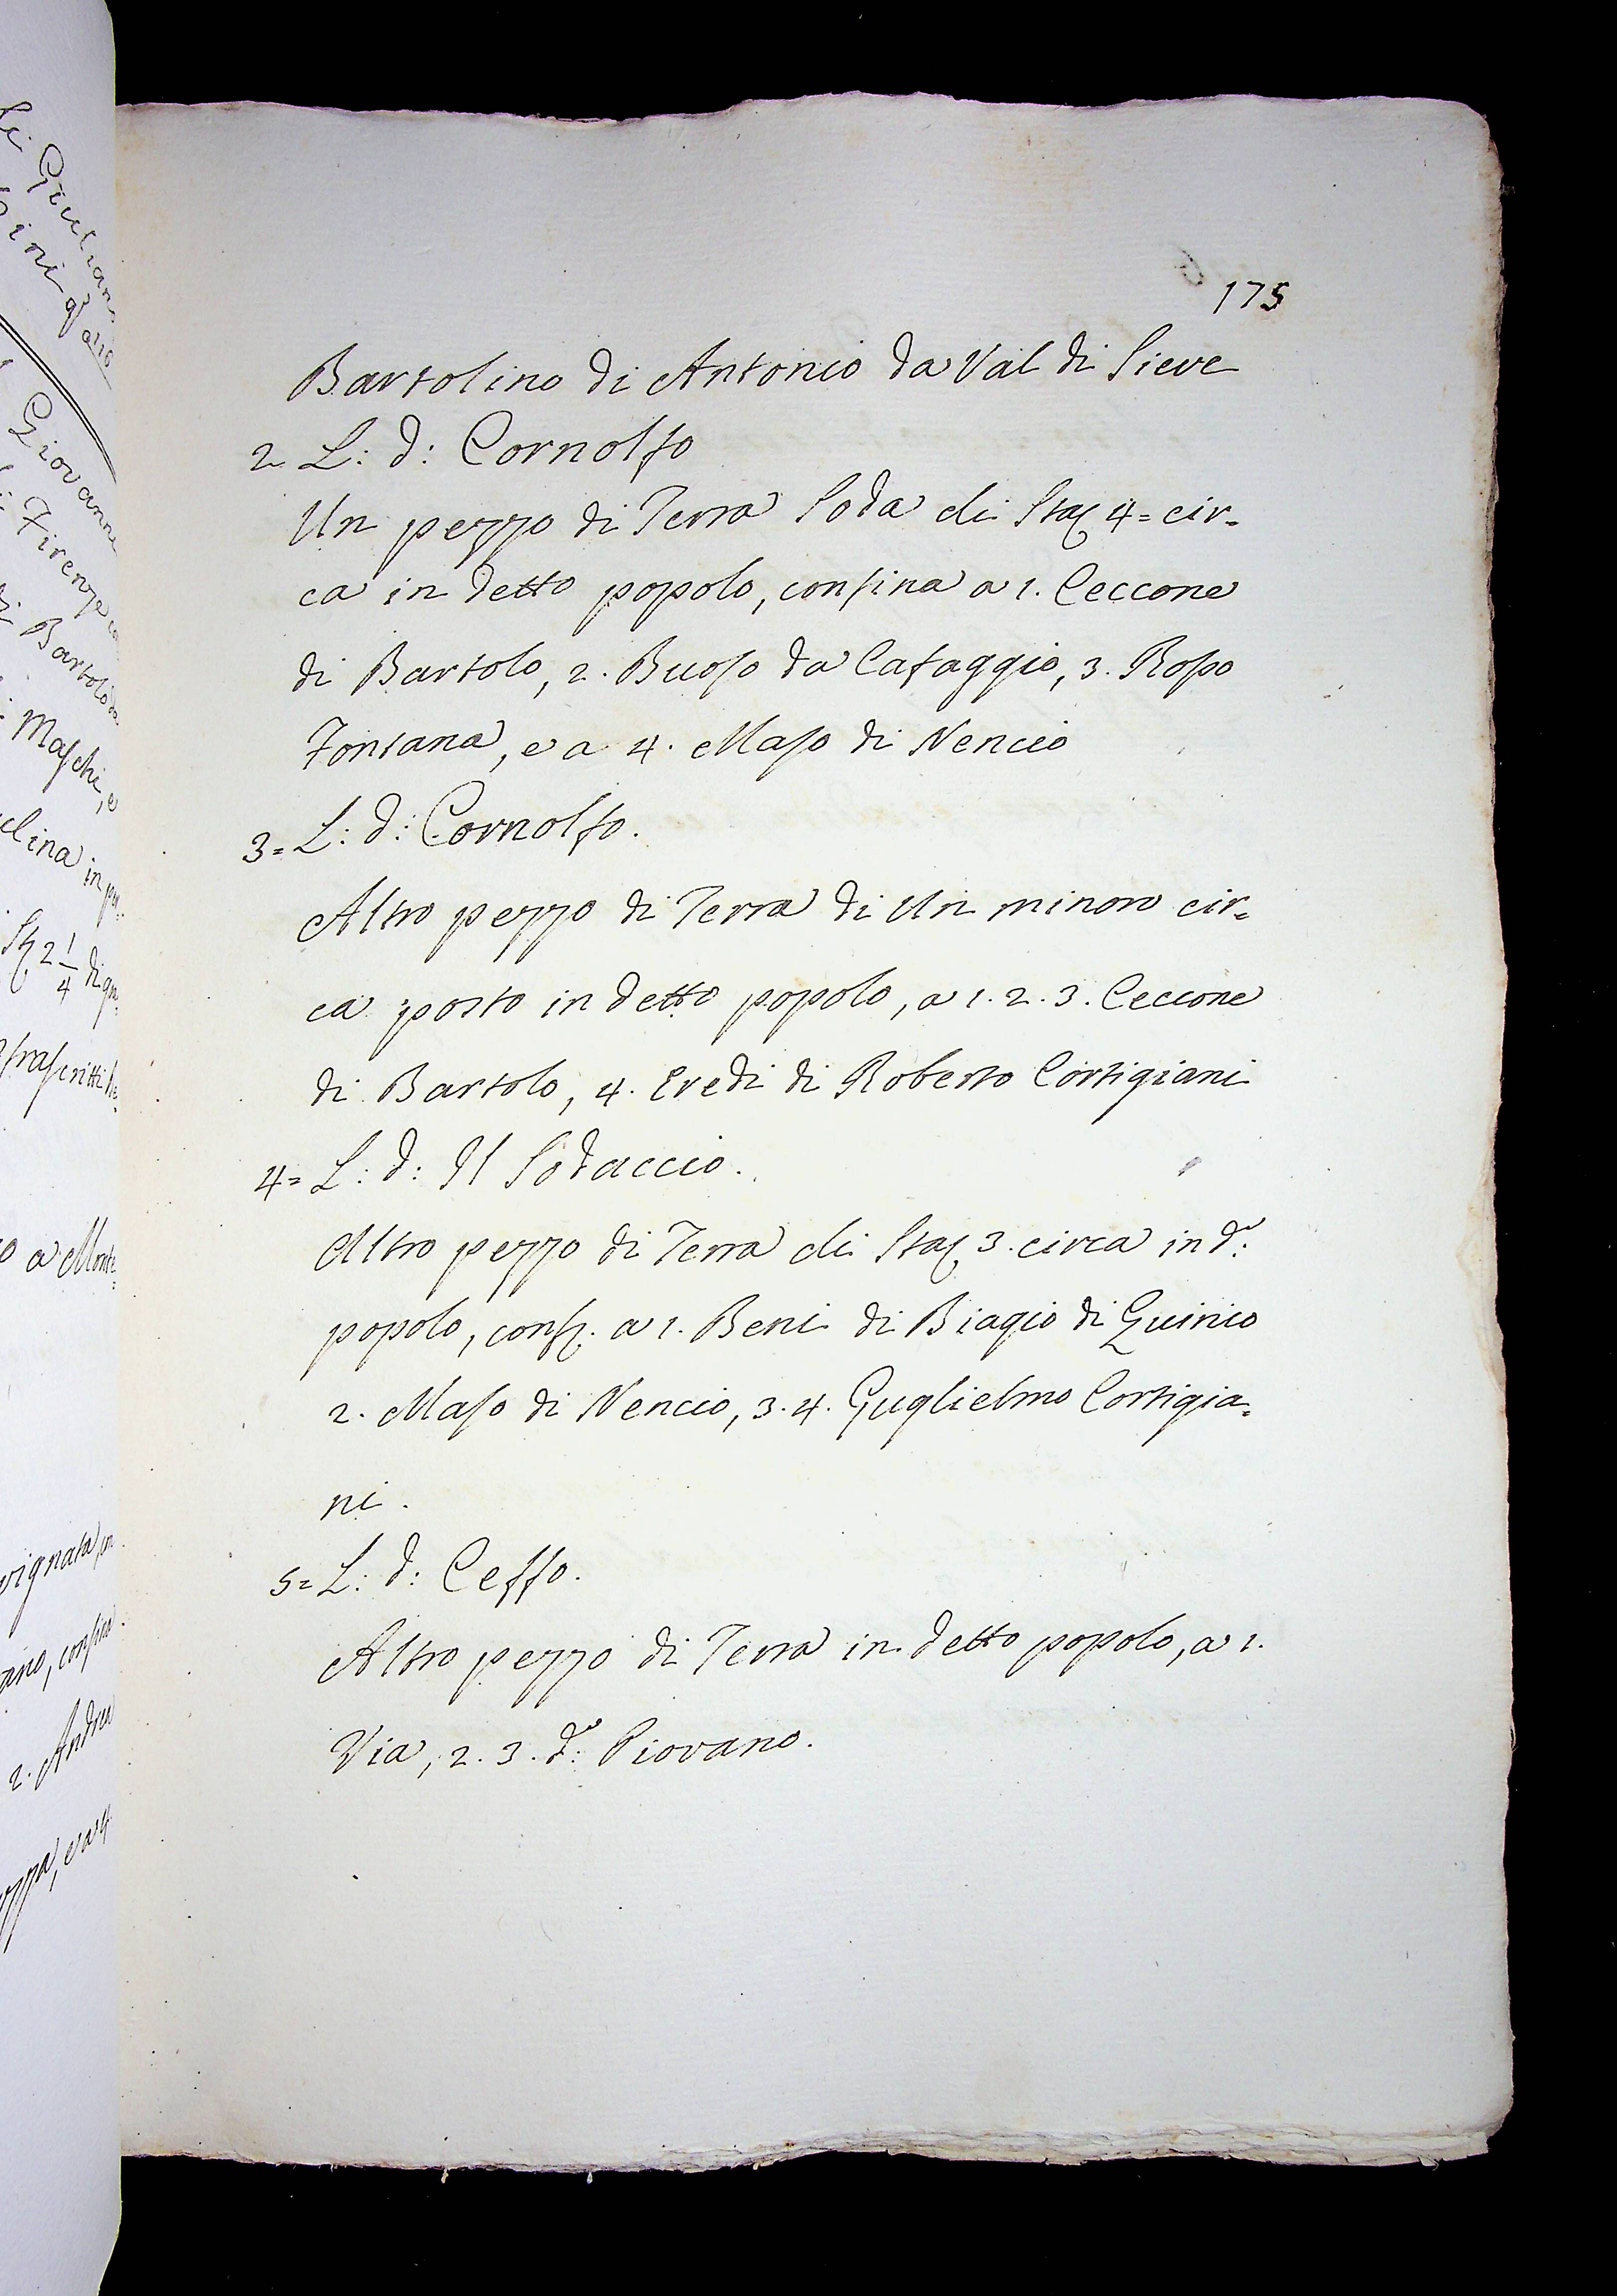 175
Bartolino di Antonio da Val di Sieve
2 L: d: Cornolfo
Un pezzo di Terra Soda di Staj 4= cir=
ca in detto popolo, confina a 1. Ceccone
di Bartolo, 2. Buoso da Cafaggio, 3. Rosso
Fontana, e a 4. Maso di Nencio
3= L: d: Cornolfo.
Altro pezzo di Terra di Un minoro cir=
ca posto in detto popolo, a 1. 2. 3. Ceccone
di Bartolo, 4. Eredi di Roberto Cortigiani
4= L: d: Il Sodaccio.
Altro pezzo di Terra di Staj 3. circa in d.º:
popolo, conf. a 1. Beni di Biagio di Quirico
2. Maso di Nencio, 3. 4. Guglielmo Cortigia=
ni.
5= L: d: Ceffo.
Altro pezzo di Terra in detto popolo, a 1.
Via, 2. 3. d.º: Piovano.
Giovanni
Firenze
Bartolo da
Maschi, e
2 1/4 di
a Monte=
vignata
confina
2. Andrea